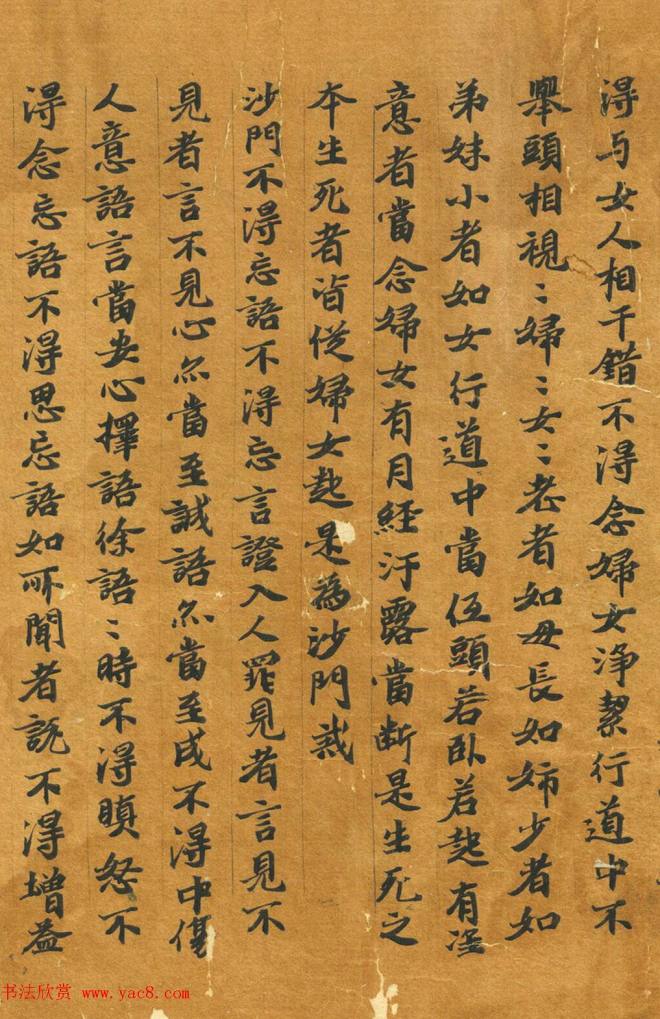 淂与女人相干錯不淂念婦女淨絜行道中不
舉頭相視〻婦〻女〻老者如母長如姉少者如
弟妹小者如女行道中當伍頭若卧若起有淫
意者當念婦女有月經汙露當斷是生死之
夲生死者皆從婦女起是為沙門戒
沙門不淂忘語不淂忘言證入人罪見者言見不
見者言不見心亦當至誠語亦當至成不淂中傷
人意語言當安心擇語徐語〻時不淂瞋怒不
淂念忘語不淂思忘語如所聞者説不淂增益
书法欣赏 www.yac8.com